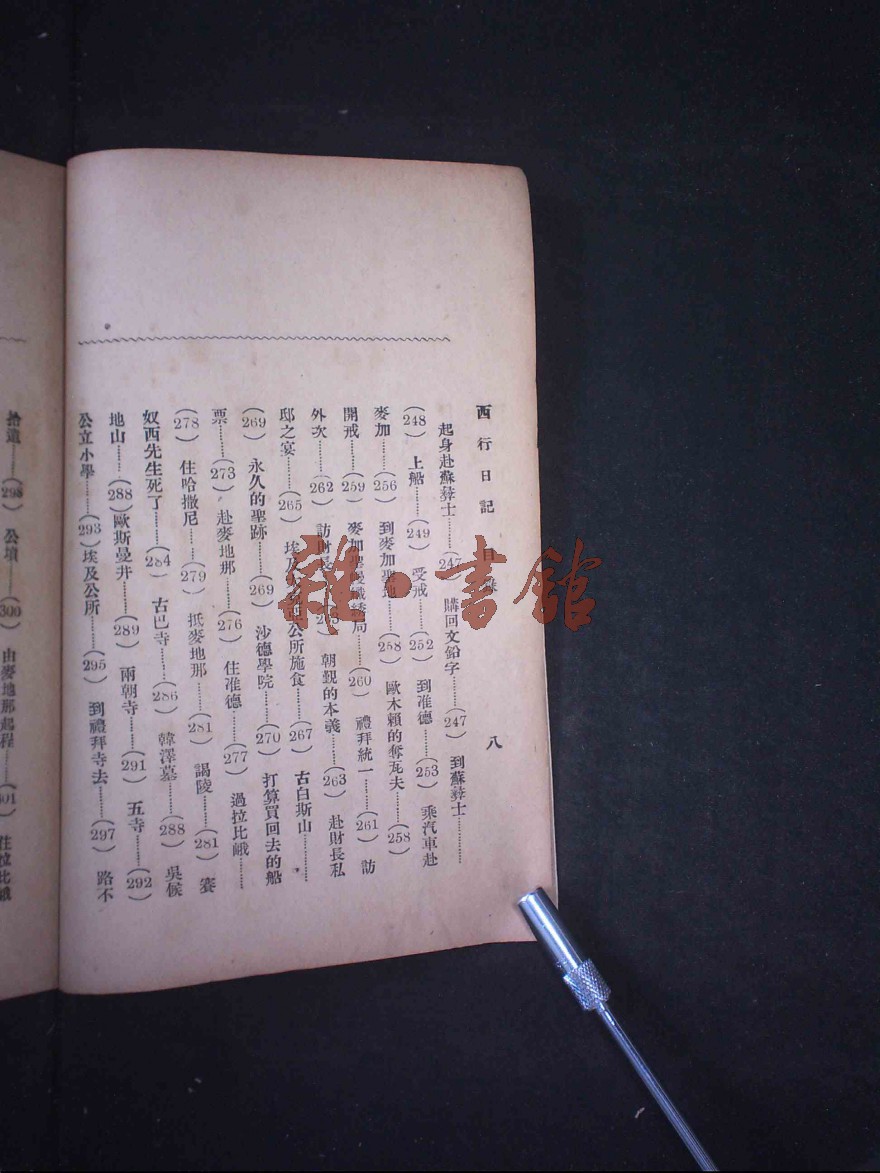 西行日記目錄 八
起身赴蘇彝士………(247) 購回文鉛字……(247) 到蘇彝士………
(248) 上船……(249) 受戒……(252) 到准德……(253) 乘汽車赴
麥加……(256) 到麥加聖地……(258) 歐木賴的奪瓦夫……(258)
開戒……(259) 麥加 局……(260) 禮拜統一……(261) 訪
外次……(262) 訪財長 朝覲的本義……(263) 赴財長私
邸之宴……(265) 埃及 公所施食……(267) 古白斯山………
(269) 永久的聖跡……(269) 沙德學院……(270) 打算買回去的船
票……(273) 赴麥地那……(276) 住准德……(277) 過拉比峨……
(278) 住哈撒尼……(279) 抵麥地那……(281) 謁陵……(281) 賽
奴西先生死了………(284) 古巴寺……(286) 韓澤墓……(288) 吳候
地山……(288)歐斯曼井……(289) 兩朝寺……(291) 五寺……(292)
公立小學……(293)埃及公所……(295) 到禮拜寺去……(297) 路不
拾遺……(298) 公墳……(300) 由麥地那起程……(301) 住拉比峨
雜·書館